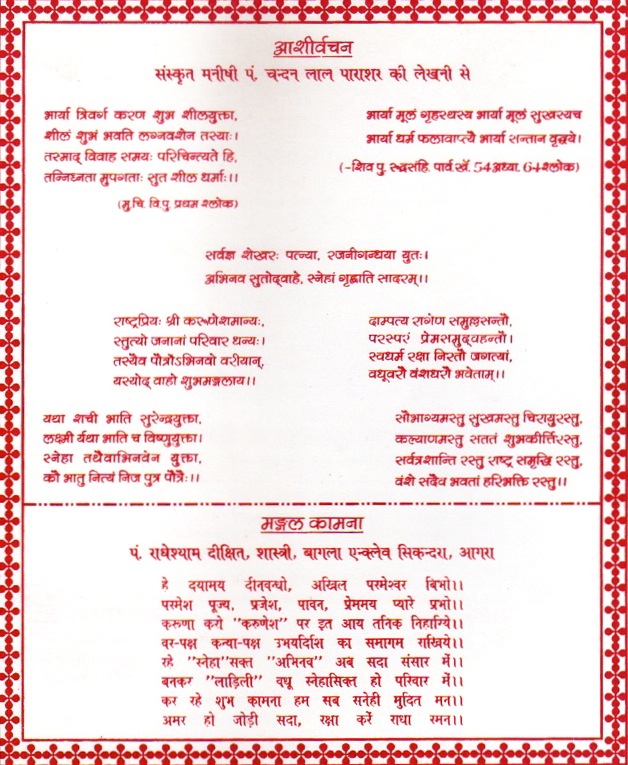 आशीर्वचन
संस्कृत मनीषी पं. चन्दन लाल पाराशर की लेखनी से
भार्या त्रिवर्ग करण शुभ शीलयुक्ता,
शीलं शुभं भवति लग्नवशेन तस्याः।
तस्माद् विवाह समयः परिचिन्त्यते हि,
तन्निघ्नता मुपगताः सुत शील धर्माः।।
(मु.चि. वि.पु. प्रथम श्लोक)
भार्या मूलं गृहस्थस्य भार्या मूलं सुखस्यच
भार्या धर्म फलावाप्त्यै भार्या सन्तान वृद्धये।
(-शिव पु. रूद्रसंहि. पार्व खं. 54 अध्या. 64 श्लोक)
सर्वज्ञ शेखरः पत्न्या, रजनीगन्धया युतः।
अभिनव सुतोद्वाहे, स्नेहां गृह्णाति सादरम्।।
राष्ट्रप्रियः श्री करूणेशमान्यः,
स्तुत्यो जनानां परिवार धन्यः।
तस्यैव पौत्रोऽभिनवो वरीयान्,
यस्योद् वाहो शुभमङ्गलाय।।
दाम्पत्य रागेण समुल्लसन्तौ,
परस्परं प्रेमसमुद्वहन्तौ।
स्वधर्म रक्षा निरतौ जगत्यां,
वधूवरौ वंशधरौ भवेताम्।।
यथा शची भाति सुरेन्द्रयुक्ता,
लक्ष्मी र्यथा भाति च विष्णुयुक्ता।
स्नेहा तथैवाभिनवेन युक्ता,
कौ भातु नित्यं निज पुत्र पौत्रैः।।
सौभाग्यमस्तु सुखमस्तु चिरायुरस्तु,
कल्याणमस्तु सततं शुभकीर्त्तिरस्तु,
सर्वत्रशान्ति रस्तु राष्ट्र समृद्धि रस्तु,
वंशे सदैव भवतां हरिभक्ति रस्तु।।
मङ्गल कामना
पं. राधेश्याम दीक्षित, शास्त्री, बागला एन्क्लेव सिकन्दरा, आगरा
हे दयामय दीनवन्धो, अखिल परमेश्वर बिभो।।
परमेश पूज्य, प्रजेश, पावन, प्रेममय प्यारे प्रभो।।
करूणा करो "करुणेश" पर इत आय तनिक निहारिये।।
वर-पक्ष कन्या-पक्ष उभयर्दिशि का समागम राखिये।।
रहे "स्नेहा"सक्त "अभिनव" अब सदा संसार में।।
बनकर "लाड़िली" वधू स्नेहासिक्त हो परिवार में।।
कर रहे शुभ कामना हम सब सनेही मुदित मन।।
अमर हो जोड़ी सदा, रक्षा करें राधा रमन।।